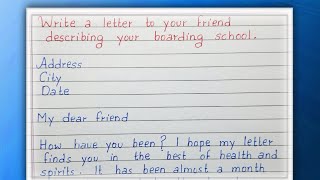 Write a letter to your friend
describing your boarding school.
Address
City
Date
My dear friend
How have you been? I hope my letter
finds you in the best of health and
spirits. It has been almost a month